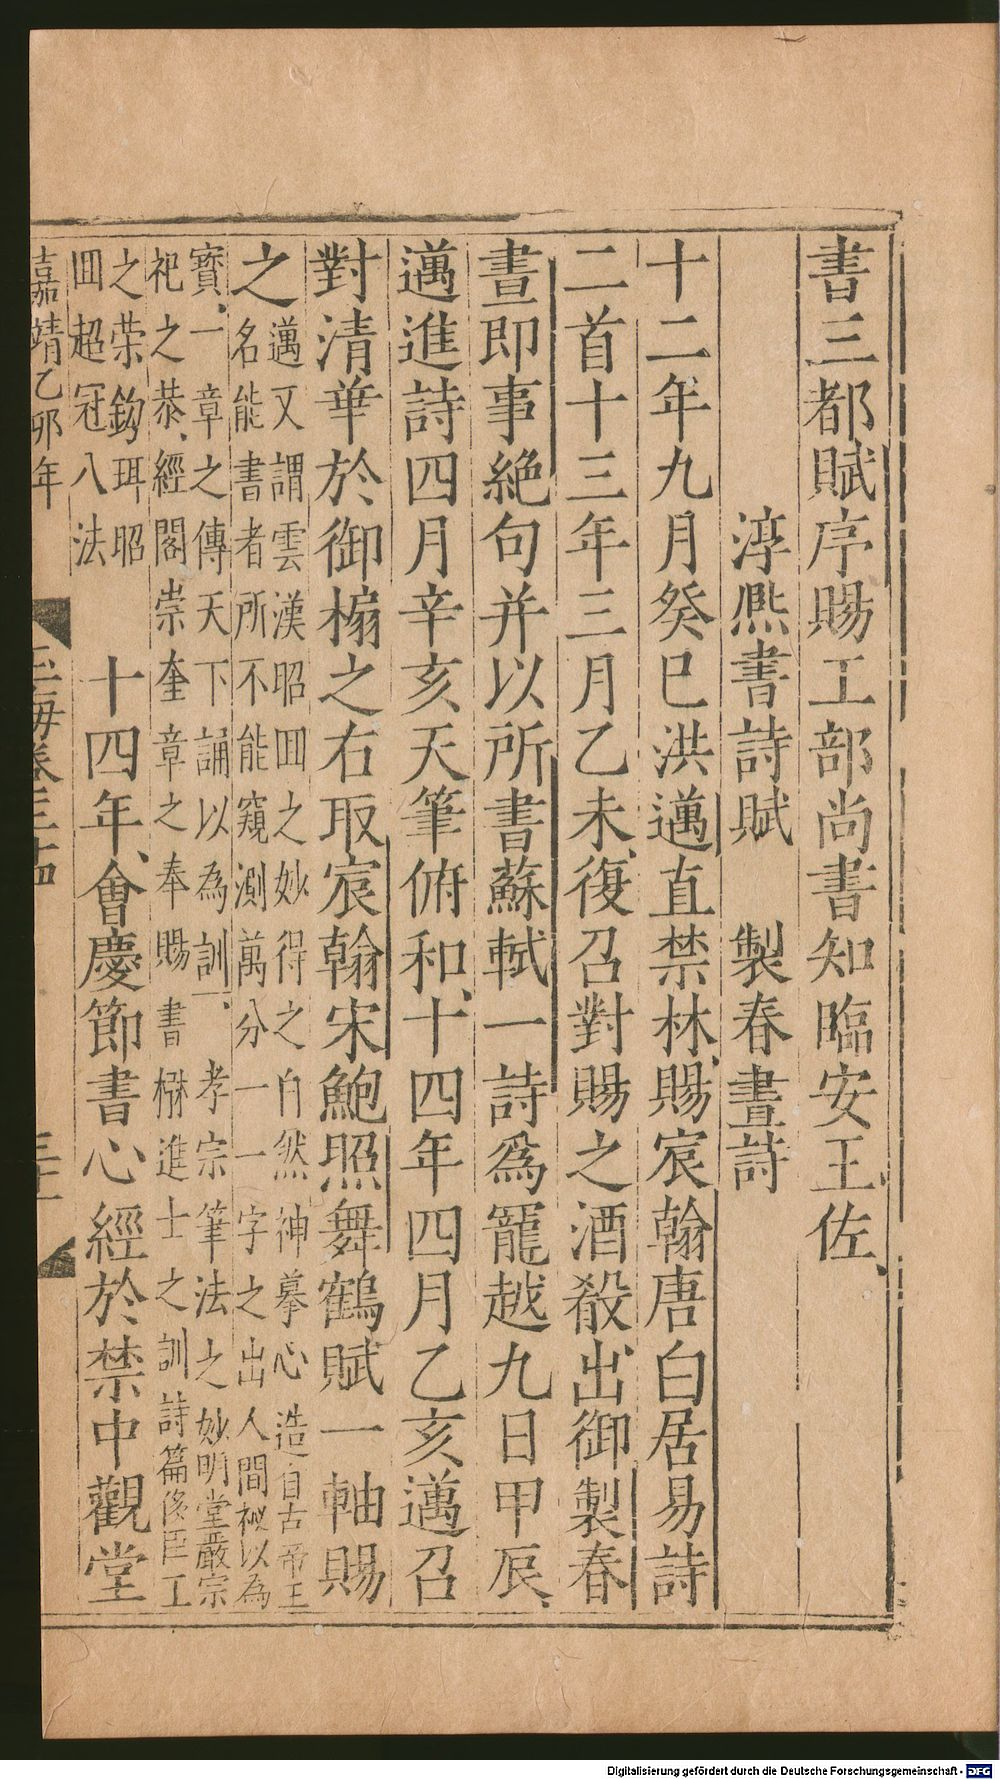 書三都賦序賜工部尚書知臨安王佐
淳熈書詩賦　製春晝詩
十二年九月癸巳洪邁直禁林賜宸翰唐白居易詩
二首十三年三月乙未復召對賜之酒殽出御製春
晝即事絶句并以所書蘇軾一詩爲寵越九日甲辰
邁進詩四月辛亥天筆俯和十四年四月乙亥邁召
對清華於御榻之右取宸翰宋鮑照舞鶴賦一軸賜
之
邁又謂雲漢昭回之妙得之自然神摹心造自古帝王
名能書者所不能窺測萬分一一字之出人間祕以為
寳一章之傳天下誦以為訓　孝宗筆法之妙明堂嚴宗
祀之恭經閣崇奎章之奉賜書櫾進士之訓詩篇侈臣工
之荣鈎珥昭
回超冠八法
十四年會慶節書心經於禁中觀堂
嘉靖乙卯年
玉海卷三十四
三十一
Digitalisierung gefördert durch die Deutsche Forschungsgemeinschaft - DFG